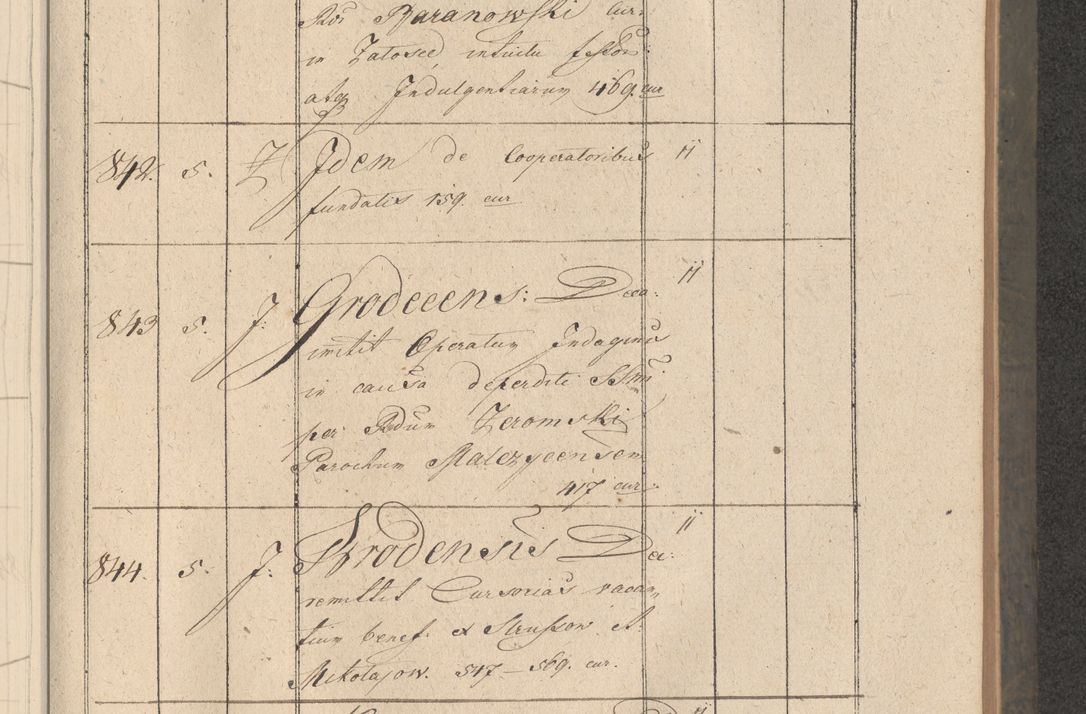 Baranowski Cur:
in Zatosce intuitu
atq Indulgentiarum 469. cur
842. 5. Idem de Cooperatoribus ii
fundatis 159. cur
843 5. J: Grodecens: Deca: ii
imitit Operatum Indaginis
in causa deperditi
per Rdum Zeromski
Parochum Malczyceensem
417 cur
844. 5. J: Brodensis Dec: ii
remittit Cursorias vacan
tium benef: ex Strusson et
Mikolajow. 547 – 569. cur.